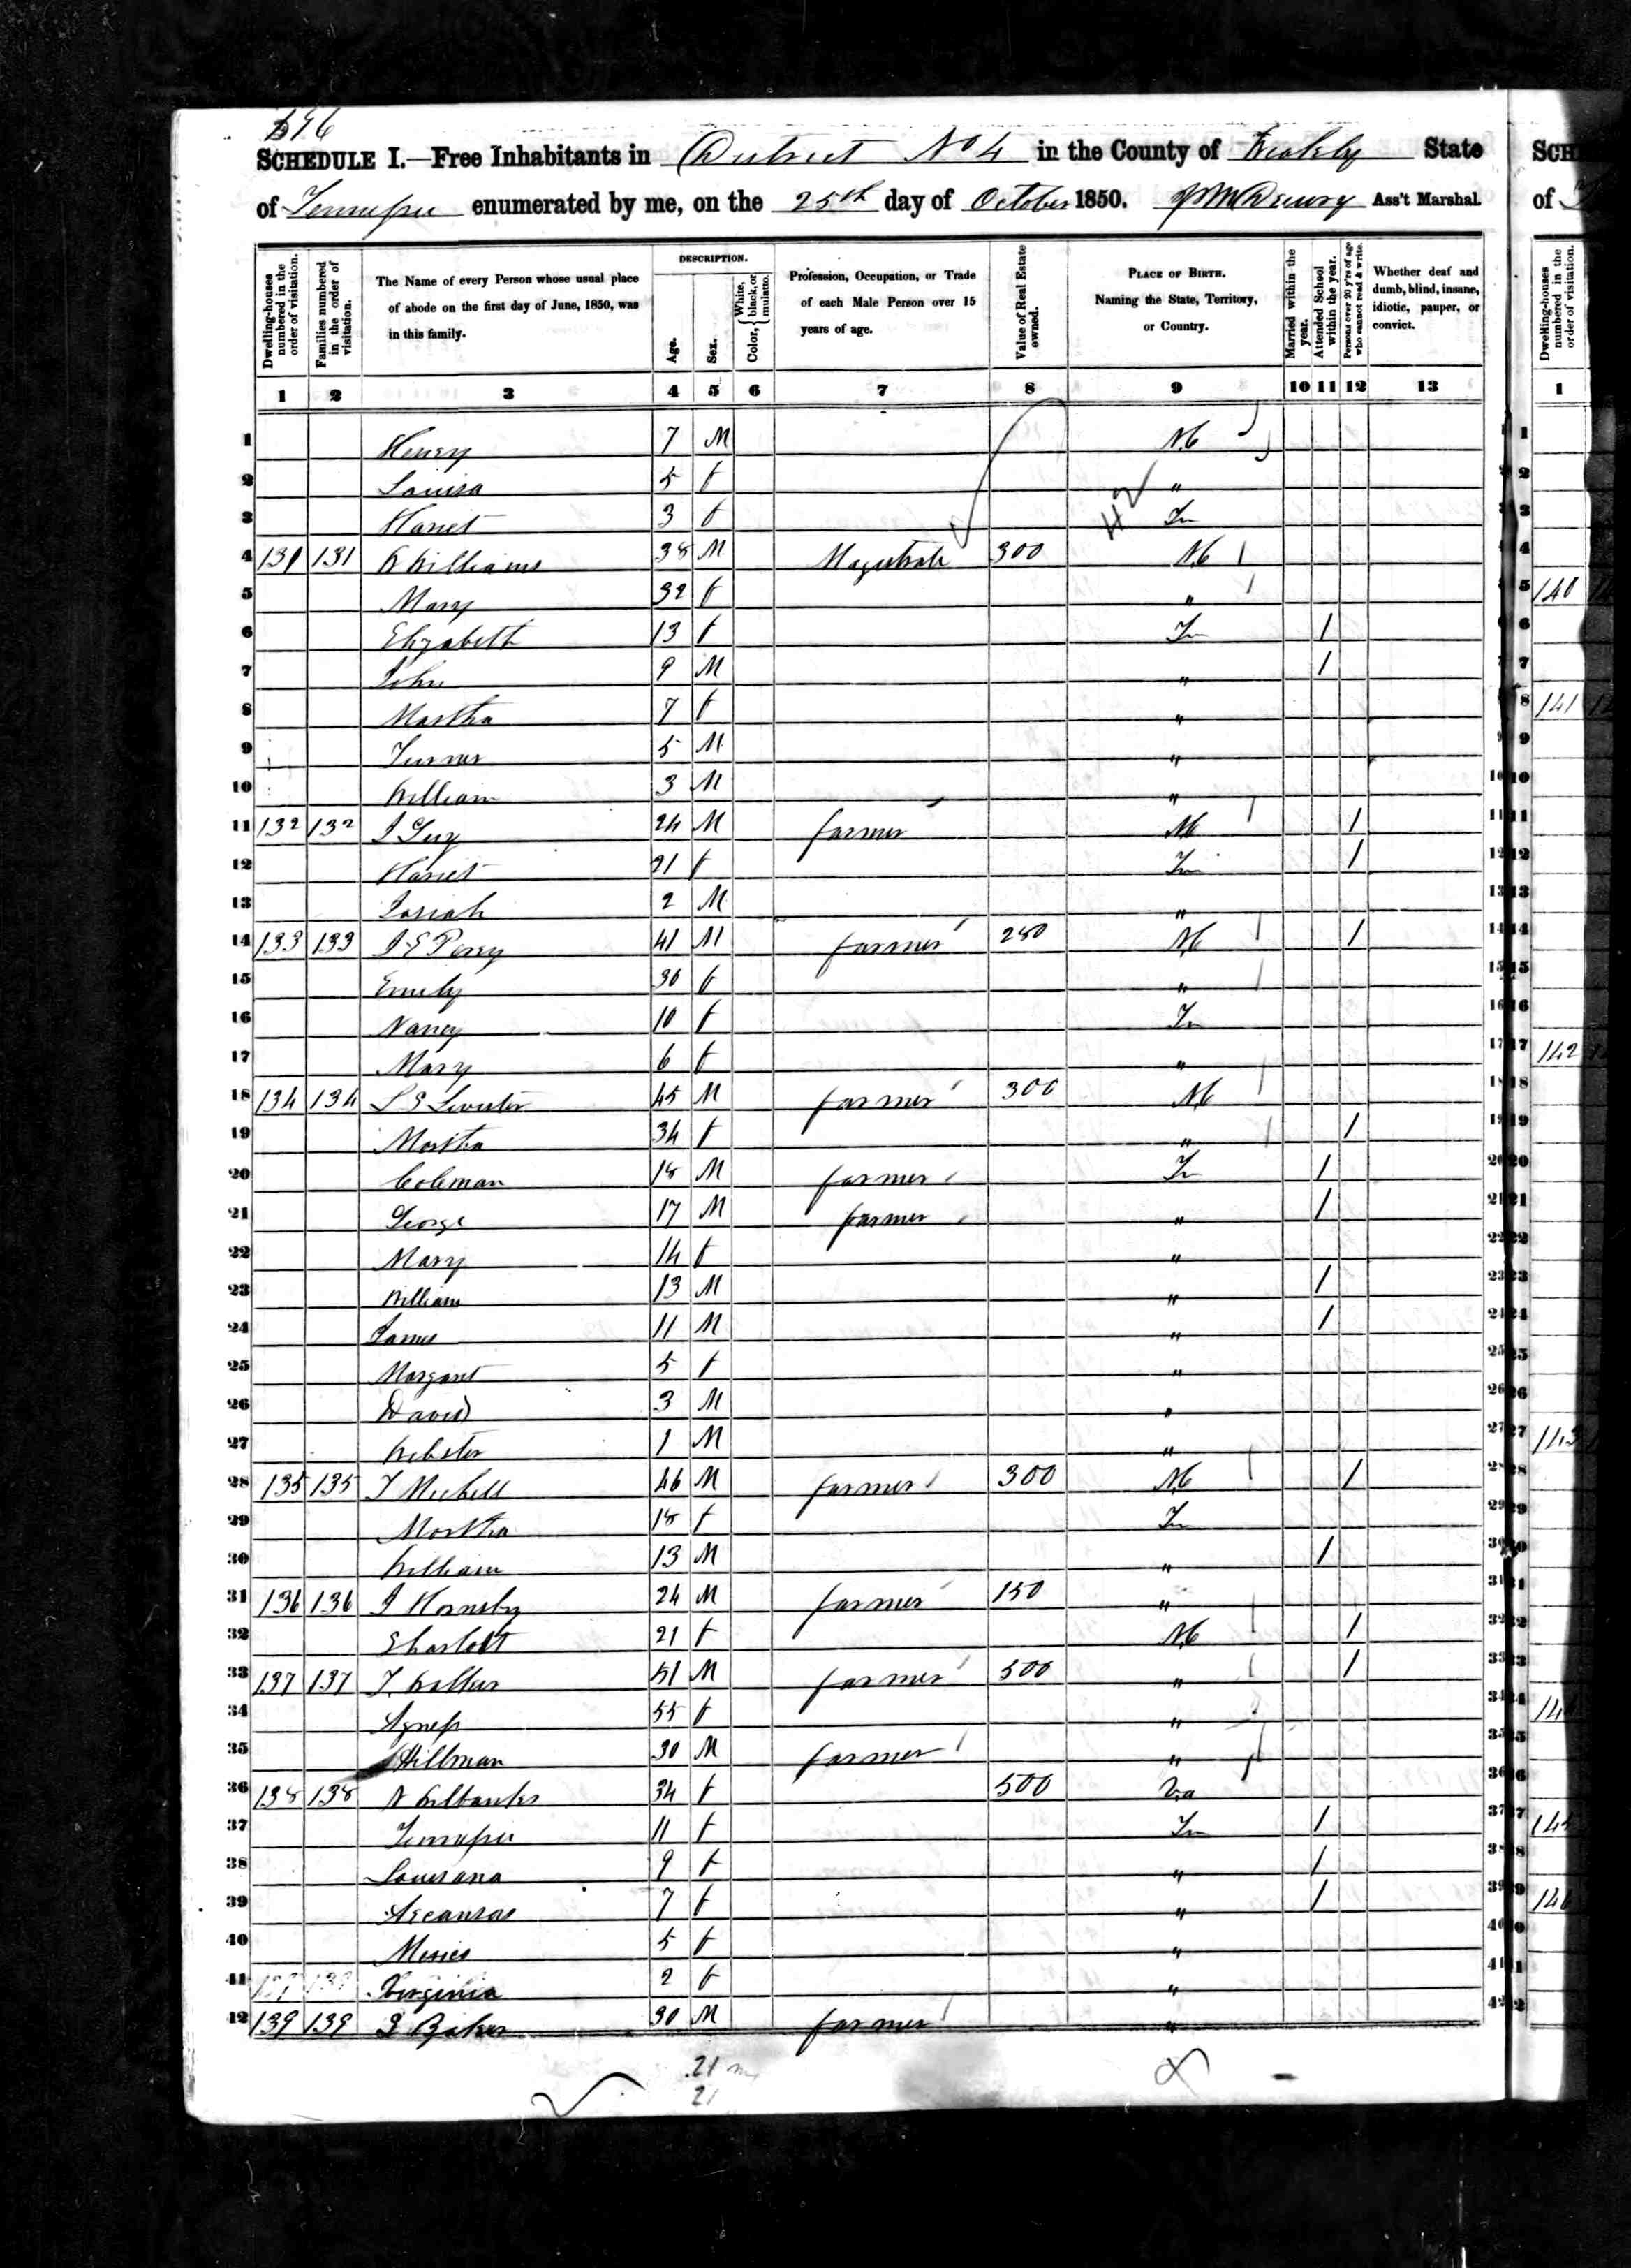 596
SCHEDULE I.—Free Inhabitants in District No 4 in the County of Weakly State
of Tennessee enumerated by me, on the 25th day of October 1850. Ass't Marshal.
Dwelling-houses numbered in the order of visitation.
Families numbered in the order of visitation.
The Name of every Person whose usual place of abode on the first day of June, 1850, was in this family.
DESCRIPTION.
Age.
Sex.
Color, { White, black, or mulatto.
Profession, Occupation, or Trade of each Male Person over 15 years of age.
Value of Real Estate owned.
PLACE OF BIRTH. Naming the State, Territory, or Country.
Married within the year.
Attended School within the year.
Persons over 20 y'rs of age who cannot read & write.
Whether deaf and dumb, blind, insane, idiotic, pauper, or convict.
1 2 3 4 5 6 7 8 9 10 11 12 13
1 Henry 7 M NC
2 Louisa 5 f "
3 Hariet 3 f Tn
4 131 131 W Williams 38 M Magistrate 300 NC
5 Mary 32 f "
6 Elizabeth 13 f Tn /
7 John 9 M " /
8 Martha 7 f "
9 Turner 5 M "
10 William 3 M "
11 132 132 J Guy 24 M farmer NC /
12 Hariet 21 f Tn /
13 Josiah 2 M "
14 133 133 J E Perry 41 M farmer 250 NC /
15 Emily 30 f "
16 Nancy 10 f Tn
17 Mary 6 f "
18 134 134 45 M farmer 300 NC
19 Martha 34 f " /
20 Coleman 18 M farmer Tn /
21 George 17 M farmer " /
22 Mary 14 f "
23 William 13 M " /
24 James 11 M " /
25 Margaret 5 f "
26 David 3 M "
27 Webster 1 M "
28 135 135 T Michell 46 M farmer 300 NC /
29 Martha 18 f Tn
30 William 13 M " /
31 136 136 J Hornsby 24 M farmer 150 "
32 Sharlott 21 f NC /
33 137 137 T. Walker 51 M farmer 500 " /
34 Agness 55 f "
35 Hillman 30 M farmer "
36 138 138 N Wilbanks 34 f 500 Va
37 Tennessee 11 f Tn /
38 Louisana 9 f " /
39 Arcansas 7 f " /
40 Mexico 5 f "
41 Virginia 2 f "
42 139 139 J Baker 30 M farmer "
21 m
21